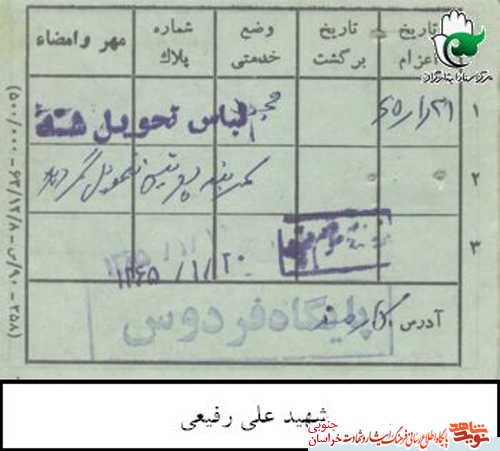 تاریخ اعزام
تاریخ برگشت
وضع خدمتی
شماره پلاک
مهر و امضاء
مرکز اسناد ایثارگران
۱
۶۵/۱/۲۱
لباس تحویل شد
۲
کمربند پوتین تحویل گردید
۳
۱۳۶۵/۱/۲۰
آدرس
پایگاه فردوس
(۵۰/۰۰۰-۶۳/۱۲/۸-ی/۹۰-۳۵۸)
شهید علی رفیعی
نوید شاهد
خراسان جنوبی
پایگاه اطلاع رسانی فرهنگ ایثار و شهادت